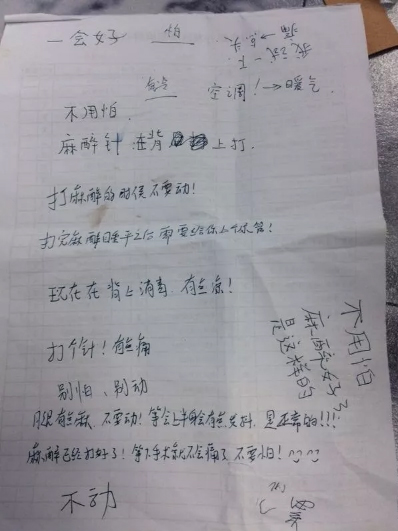 一会好 怕
痛→点头
我试一下
冷 空调！→暖气
不用怕.
麻醉针 在背 上打.
打麻醉的时侯不要动！
打完麻醉睡平之后 需要给你上个尿管！
现在在背上消毒.有点凉！
打个针！有点痛
别怕、别动
腿有点麻.不要动！等会上半身会有点发抖.是正常的!!!
麻醉已经打好了！等下手术就不会痛了 不要怕！
不动
不用怕
麻醉好了
是这样的